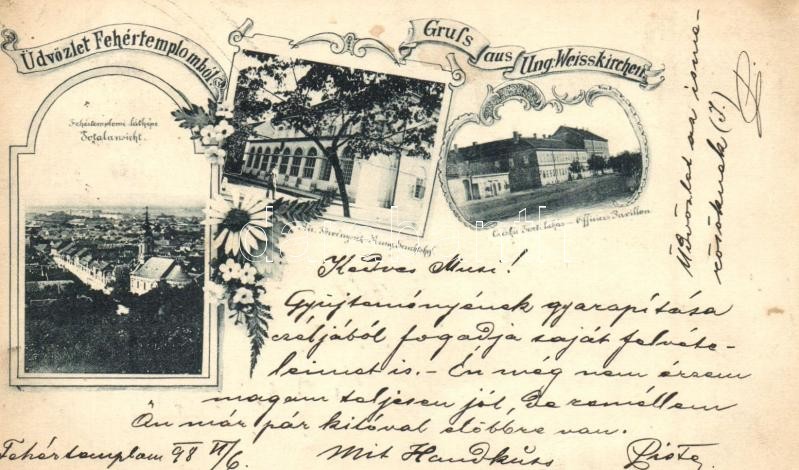 Üdvözlet Fehértemplomból
Gruss aus Ung. Weisskirchen.
Fehértemplomi látképe
Totalansicht.
Kir. Törvényszék
Cs. és kir. Tiszt. lakás – Officiers Pavillon
Kedves Musi!
Gyüjteményének gyarapítása
céljából fogadja saját felvéte-
leimet is. – Én még nem érzem
magam teljesen jól, de remélem
Ön már pár kilóval előbbre van.
Fehértemplom 98 VI/6.
Mit Handkuss
Üdvözlet az isme-
rősöknek (J.)